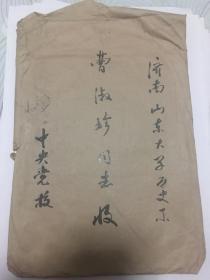 济南山东大学历史系
曹淑珍同志收
中央党校